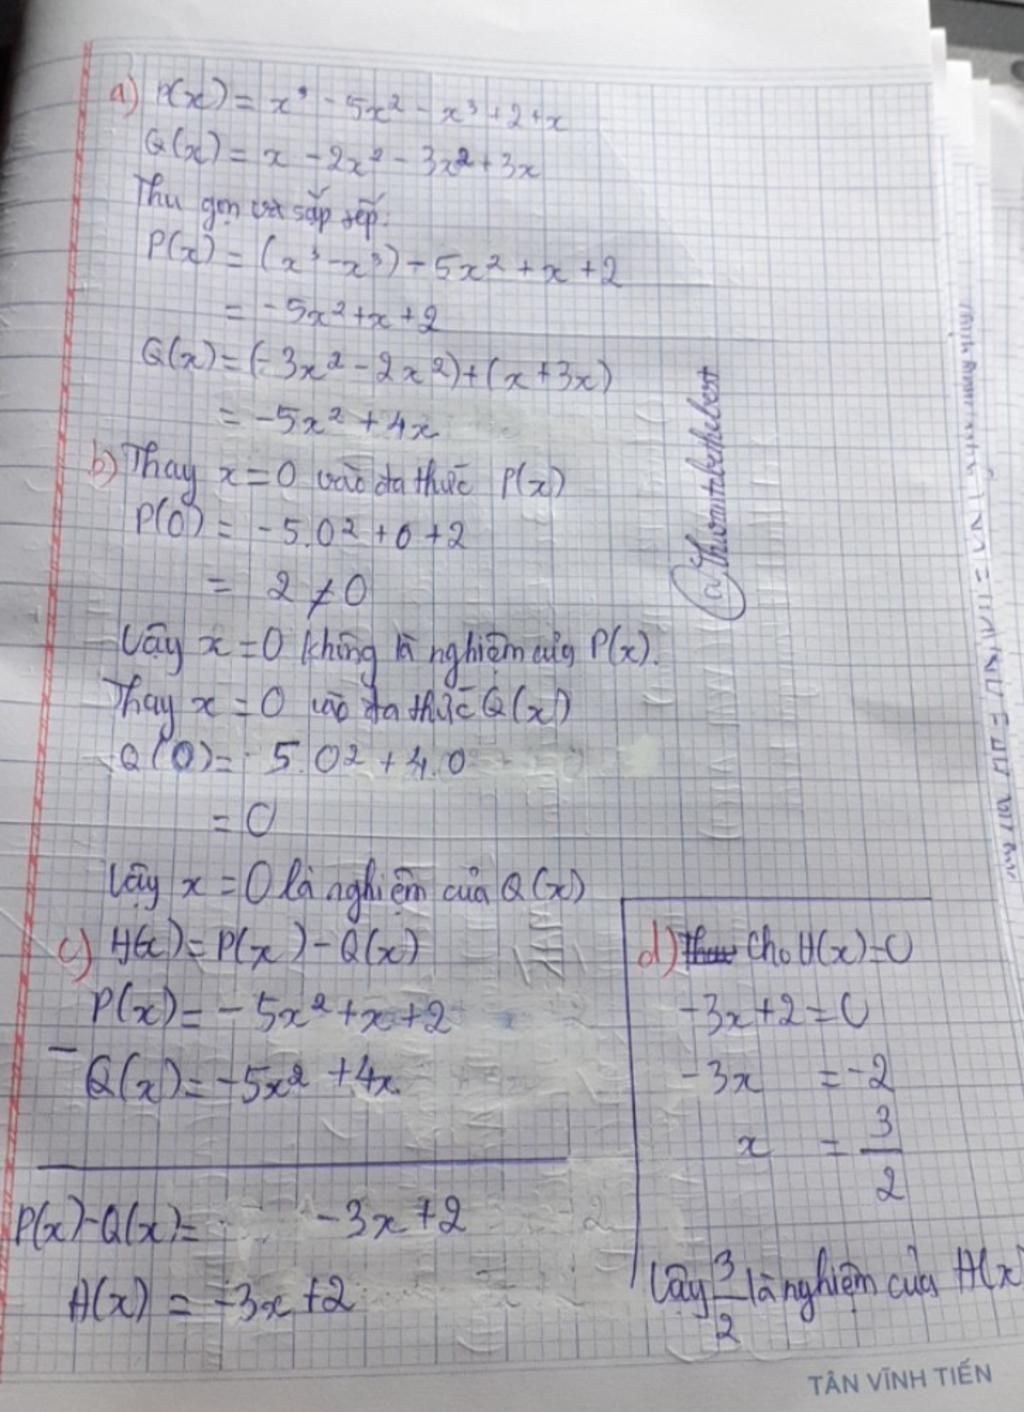 a) P(x) = x³ - 5x² - x³ + 2 + x
Q(x) = x - 2x² - 3x² + 3x
Thu gọn và sắp xếp:
P(x) = (x³ - x³) - 5x² + x + 2
= -5x² + x + 2
Q(x) = (-3x² - 2x²) + (x + 3x)
= -5x² + 4x
b) Thay x = 0 vào đa thức P(x)
P(0) = -5.0² + 0 + 2
= 2 ≠ 0
Vậy x = 0 không là nghiệm của P(x).
Thay x = 0 vào đa thức Q(x)
Q(0) = -5.0² + 4.0
= 0
Vậy x = 0 là nghiệm của Q(x)
c) H(x) = P(x) - Q(x)
P(x) = -5x² + x + 2
-
Q(x) = -5x² + 4x
P(x) - Q(x) = -3x + 2
H(x) = -3x + 2
d) Cho H(x) = 0
-3x + 2 = 0
-3x = -2
x = 3/2
Vậy 3/2 là nghiệm của H(x)
TÂN VĨNH TIẾN